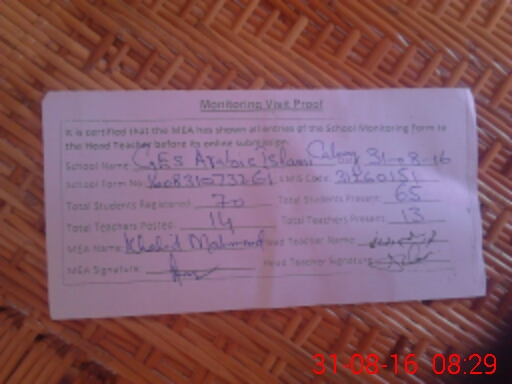 Monitoring Visit Proof
It is certified that the MEA has shown all entries of the School Monitoring Form to
the Head Teacher before its online submission.
School Name: GES Afzalove Islam Colony Date: 31-08-16
School Form No: 160831073261 EMIS Code: 31260151
Total Students Registered: 70 Total Students Present: 65
Total Teachers Posted: 14 Total Teachers Present: 13
MEA Name: Khalid Mahmood Head Teacher Name:
MEA Signature: Head Teacher Signature:
31-08-16 08:29